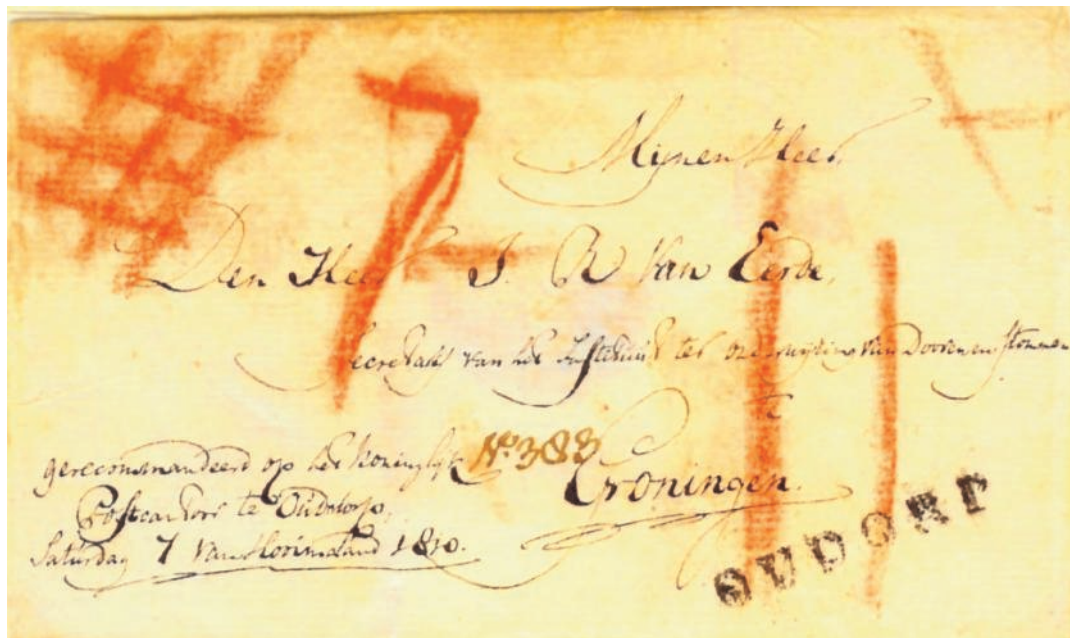 Mijnen Heer
Den Heer J. R Van Eerde,
Secretaris van het Instituut ter onderwijzing van Dooven en Stommen
te
Groningen.
No. 383
gerecommandeerd op het Koninglijk
Postcantoor te Ouddorp,
Saturdag 7 van Hooimaand 1810.
OUDORP
7